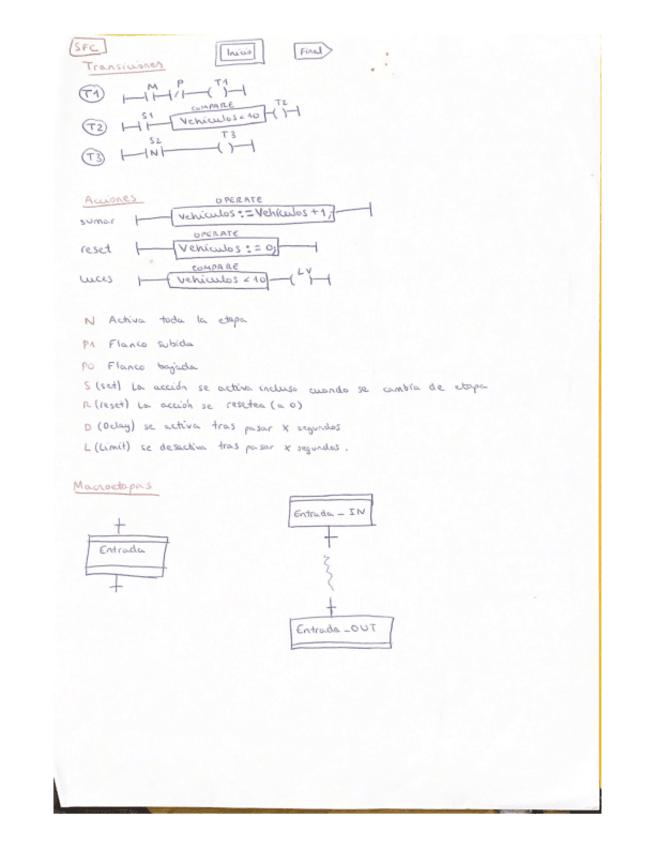 SFC
Inicio
Final
Transiciones
T1 M P T1
COMPARE
T2 S1 Vehiculos < 10 T2
T3 S2 N T3
Acciones
OPERATE
sumar Vehiculos := Vehiculos + 1;
OPERATE
reset Vehiculos := 0;
COMPARE
luces Vehiculos < 10 LV
N Activa toda la etapa
P1 Flanco subida
P0 Flanco bajada
S (set) La acción se activa incluso cuando se cambia de etapa
R (reset) La acción se resetea (a 0)
D (Delay) se activa tras pasar x segundos
L (Limit) se desactiva tras pasar x segundos.
Macroetapas
Entrada
Entrada_IN
Entrada_OUT